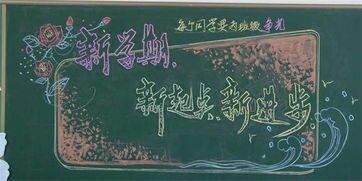 每个同学要为班级争光
新学期、
新起点、新进步、